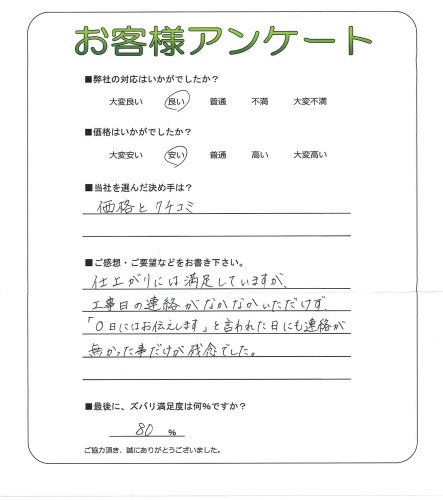 お客様アンケート
■弊社の対応はいかがでしたか？
大変良い 良い 普通 不満 大変不満
■価格はいかがでしたか？
大変安い 安い 普通 高い 大変高い
■当社を選んだ決め手は？
価格とクチコミ
■ご感想・ご要望などをお書き下さい。
仕上がりには満足していますが、
工事日の連絡がなかなかいただけず、
「〇日にはお伝えします」と言われた日にも連絡が
無かった事だけが残念でした。
■最後に、ズバリ満足度は何％ですか？
80 ％
ご協力頂き、誠にありがとうございました。